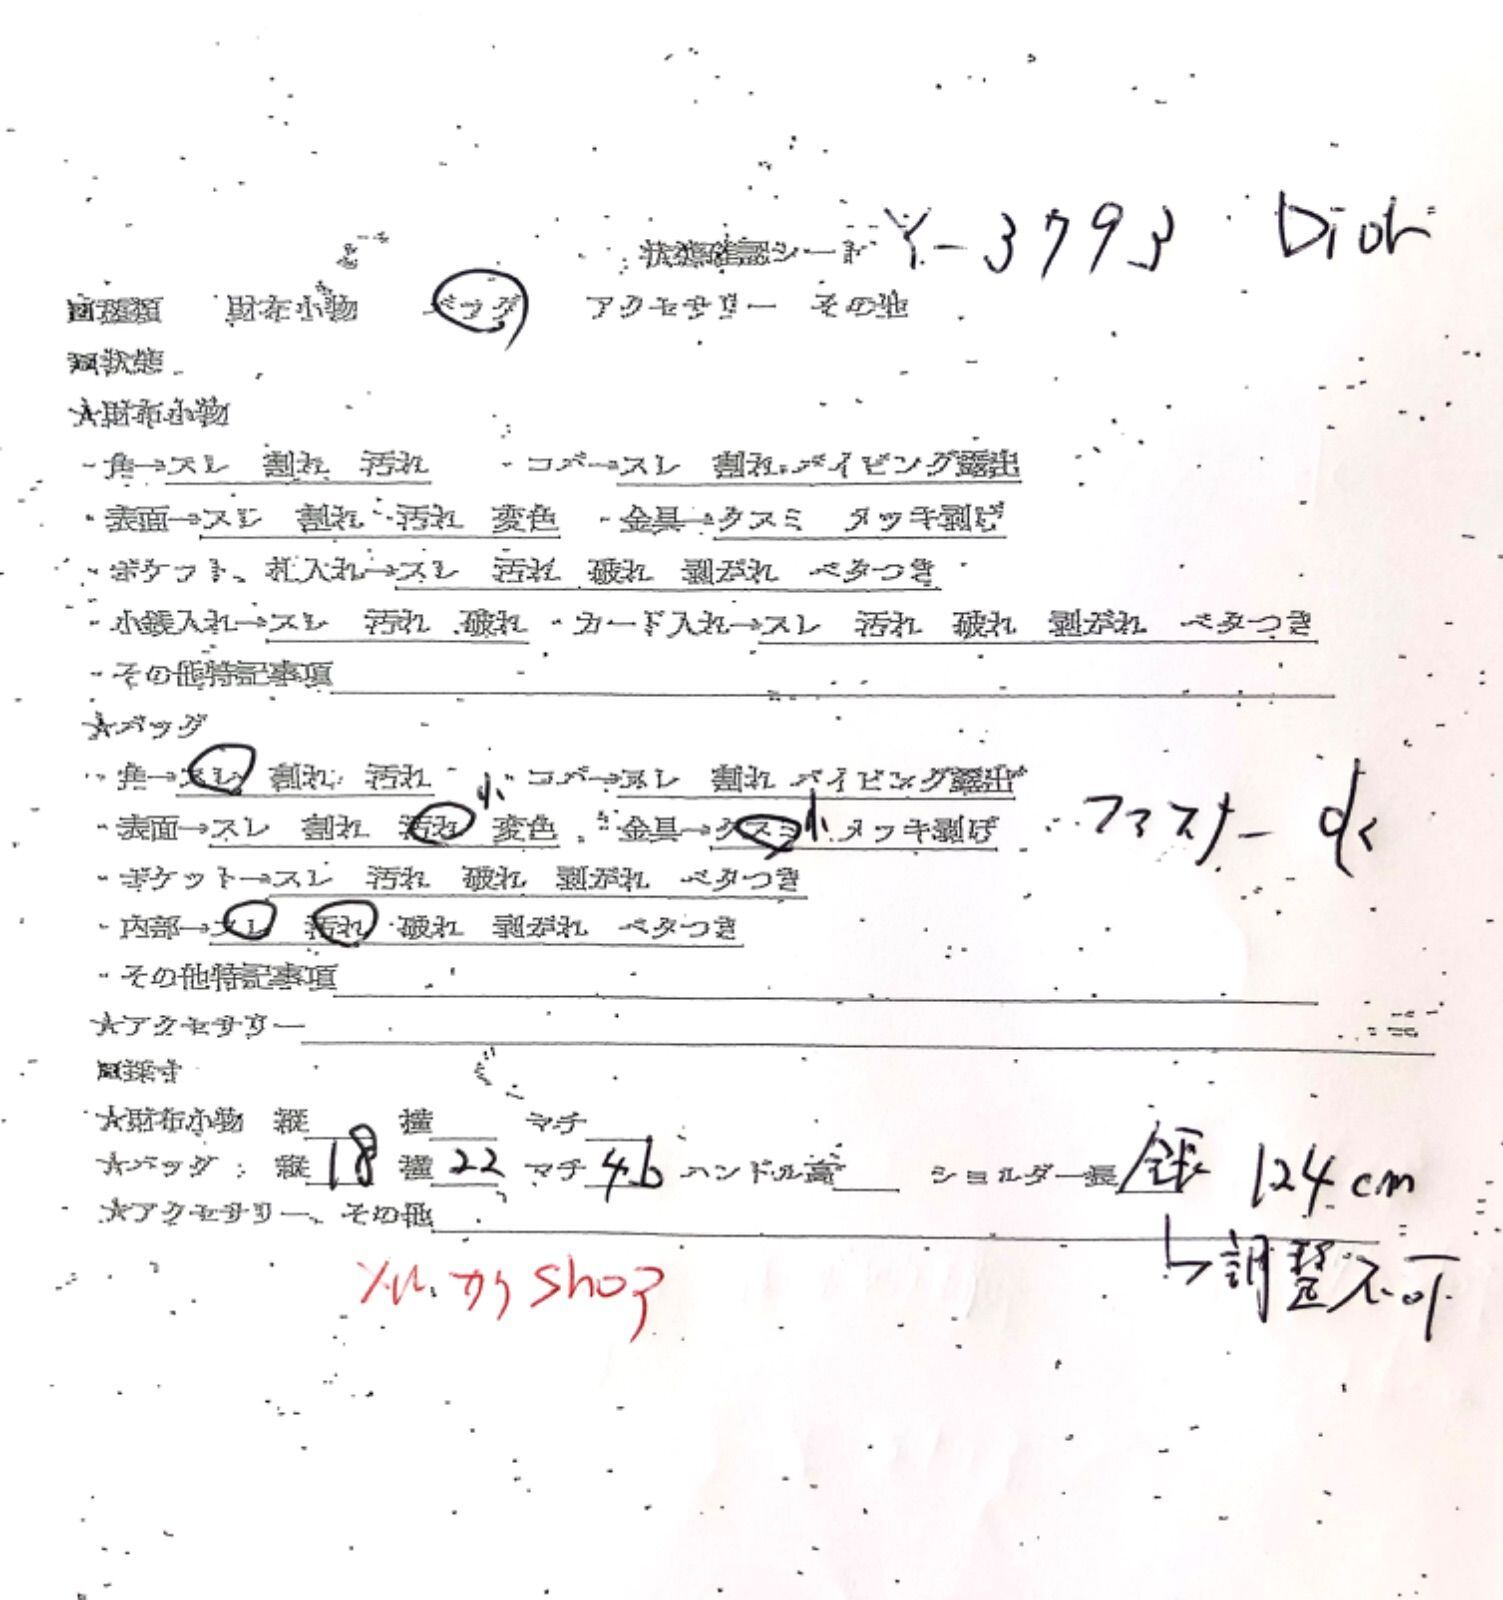 状態確認シート Y-3793 Dior
■種類 財布小物 バッグ アクセサリー その他
■状態
★財布小物
・角→スレ 割れ 汚れ ・コバ→スレ 割れ パイピング露出
・表面→スレ 割れ 汚れ 変色 ・金具→クスミ メッキ剥げ
・ポケット、札入れ→スレ 汚れ 破れ 剥がれ ベタつき
・小銭入れ→スレ 汚れ 破れ ・カード入れ→スレ 汚れ 破れ 剥がれ ベタつき
・その他特記事項
★バッグ
・角→スレ 割れ 汚れ ・コバ→スレ 割れ パイピング露出
・表面→スレ 割れ 汚れ 小 変色 ・金具→クスミ 小 メッキ剥げ ファスナー ok
・ポケット→スレ 汚れ 破れ 剥がれ ベタつき
・内部→スレ 汚れ 破れ 剥がれ ベタつき
・その他特記事項
★アクセサリー
■採寸
★財布小物 縦 横 マチ
★バッグ: 縦 18 横 22 マチ 4.6 ハンドル高 ショルダー長 全長 124cm
★アクセサリー、その他
↳調整不可
shop